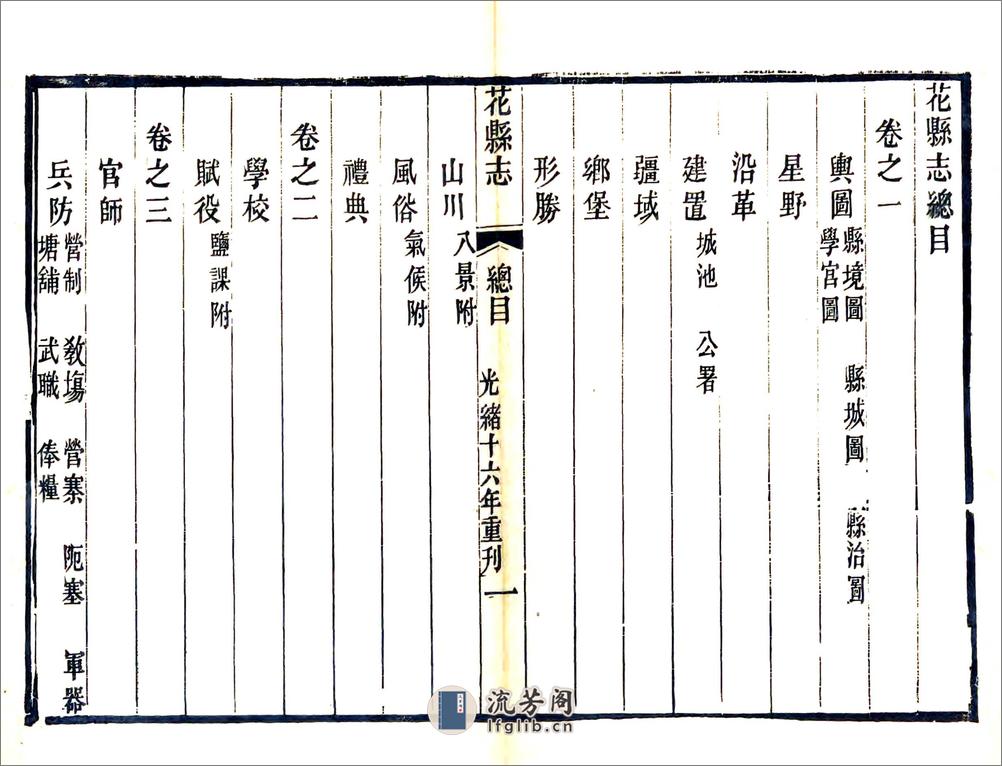 花縣志總目
卷之一
輿圖 縣境圖 縣城圖 縣治圖
學宮圖
星野
沿革
建置 城池 公署
疆域
鄉堡
形勝
花縣志 總目 光緒十六年重刊 一
山川 八景附
風俗 氣候附
禮典
卷之二
學校
賦役 鹽課附
卷之三
官師
兵防 營制 教塲 營寨 阨塞 軍器
塘舖 武職 俸糧
流芳阁
lfglib.cn